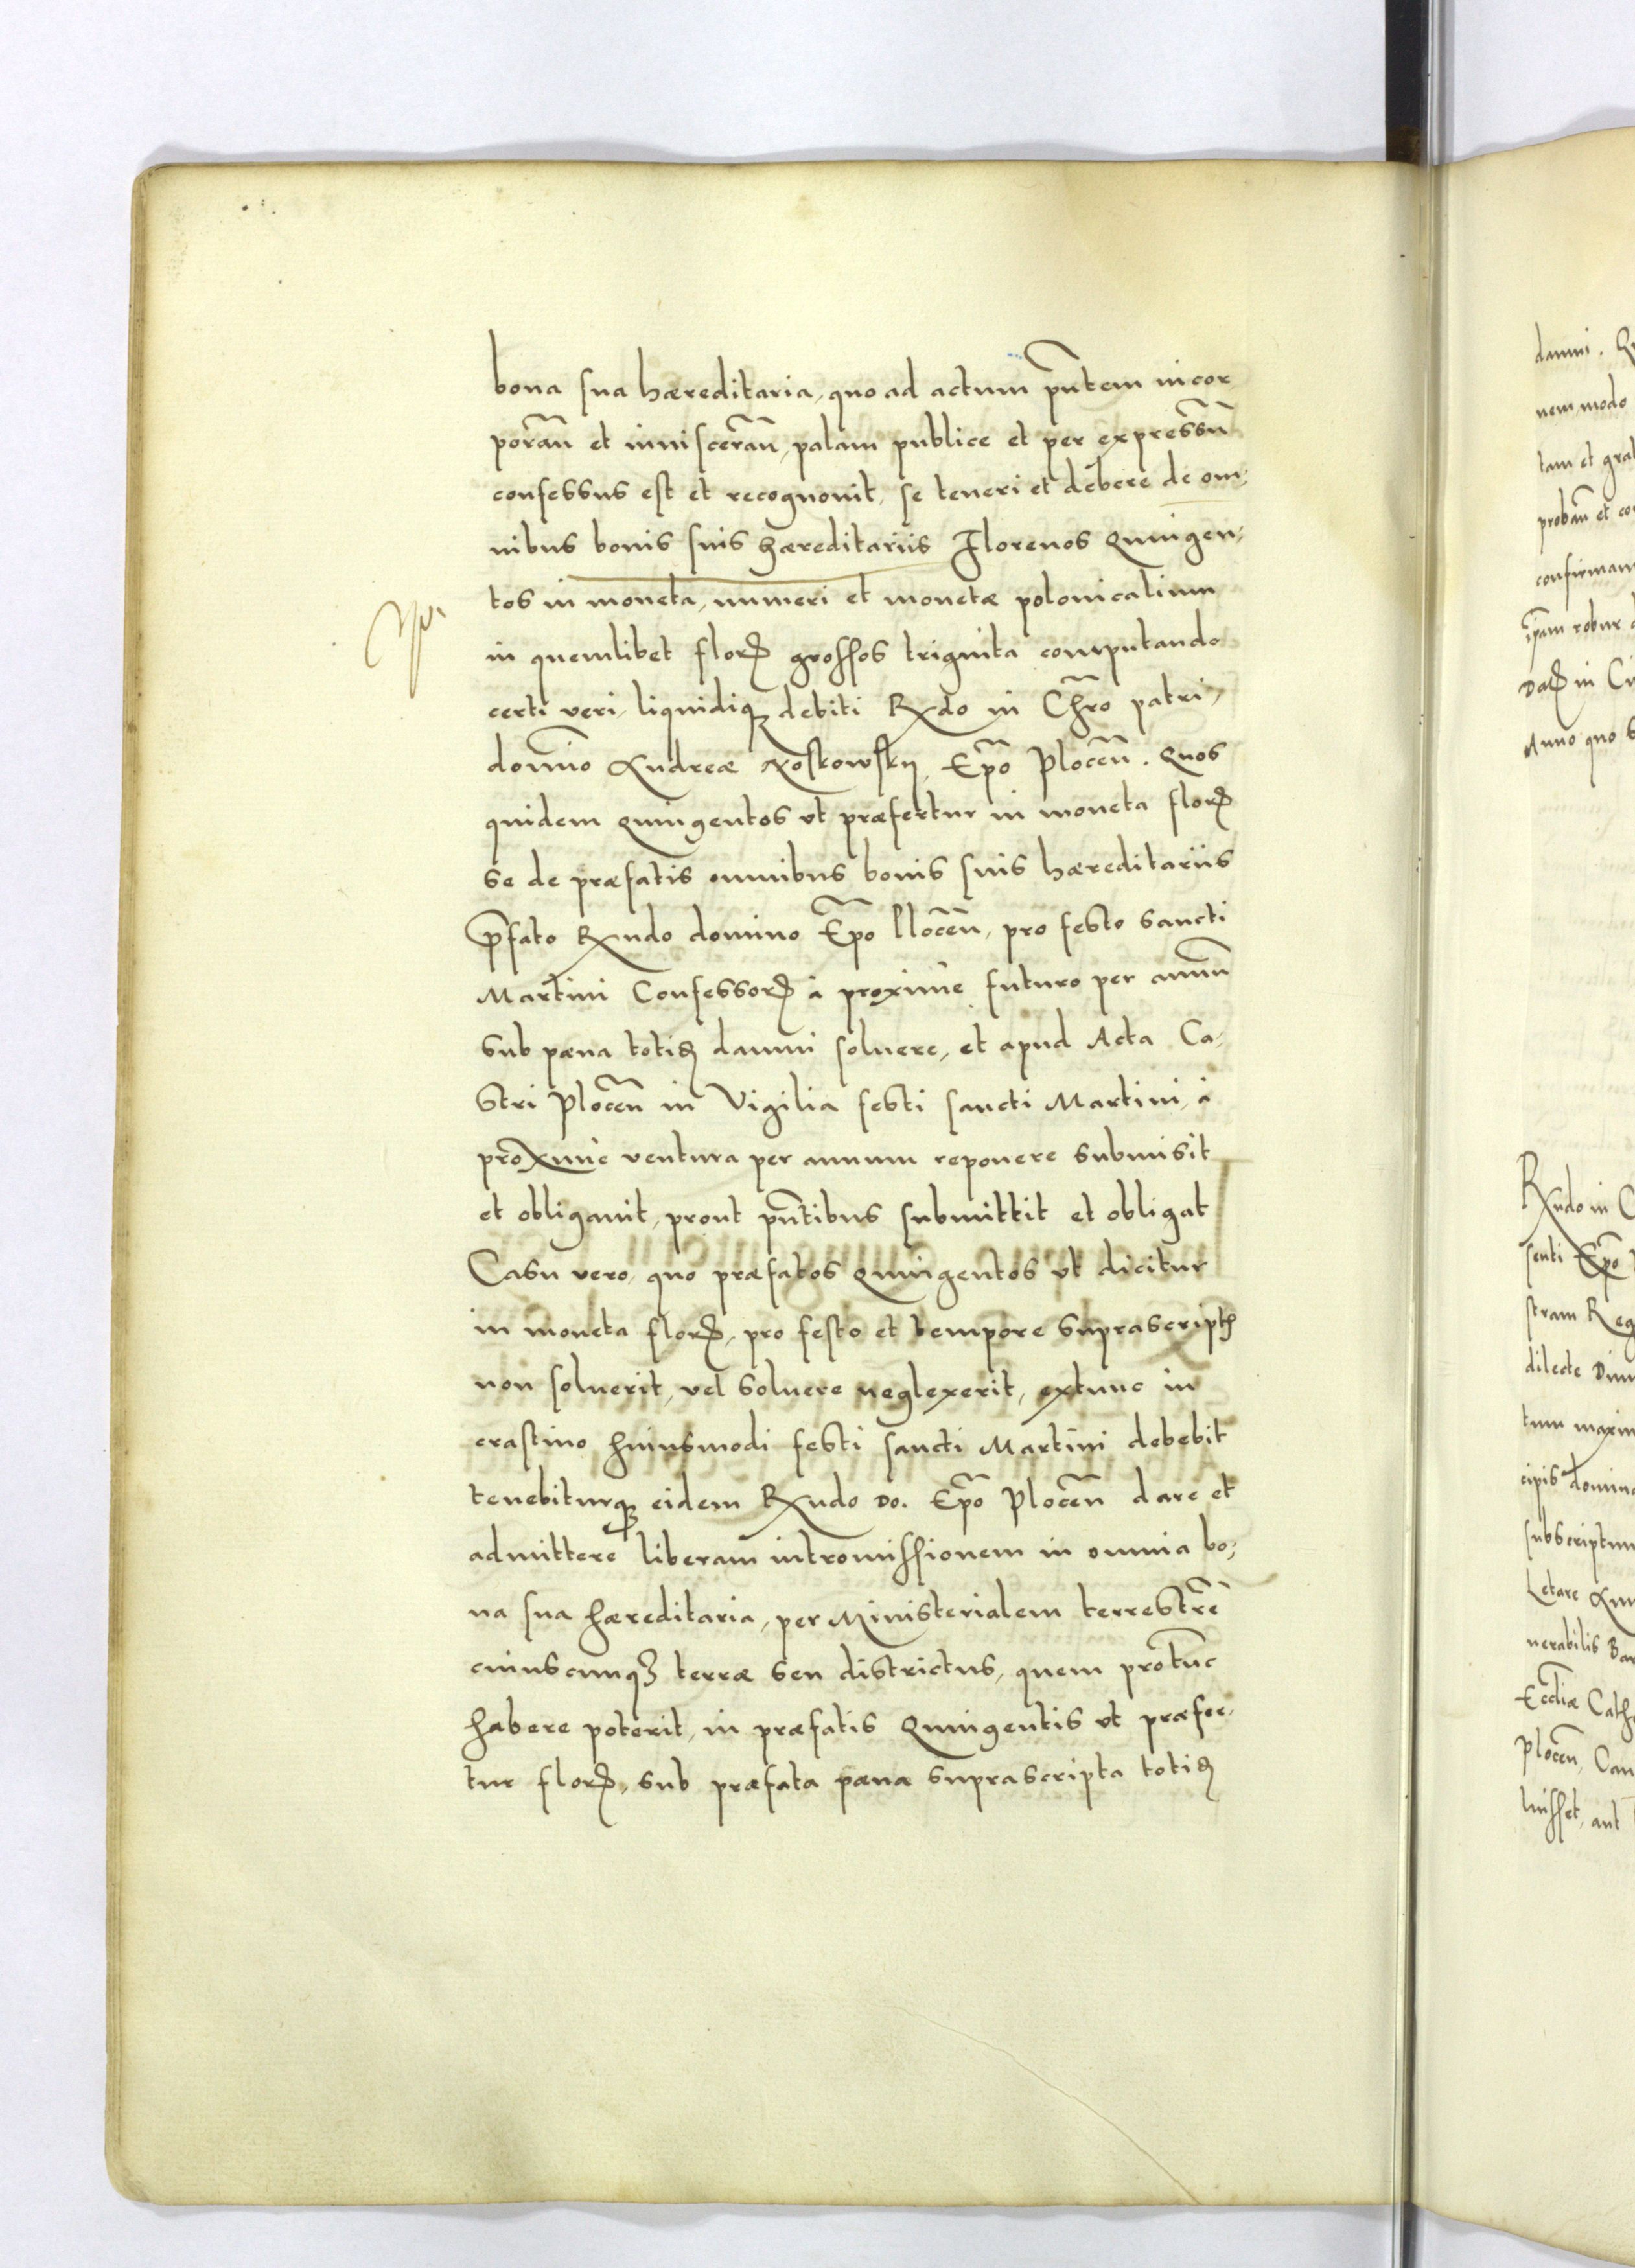 bona sua hæreditaria, quo ad actum pñtem incor
porañ et inniscerañ, palam publice et per expressũ
confessus est et recognouit, se teneri et debere de om,
nibus bonis suis hæreditariis Florenos Quingen,
tos in moneta, numeri et monetæ polonicalium
in quemlibet floꝝ grossos triginta computando
certi veri, liquidiqꝫ debiti Rxdo in Chro patri,
domino Andreæ Noskowskij, Epo Plocen̄. Quos
quidem Quingentos vt præfertur in moneta floꝝ
se de præfatis omnibus bonis suis hæreditariis
p̄fato Rxndo domino Epo Plocen̄, pro festo sancti
Martini Confessoꝝ à proxime futuro per annũ
sub pæna totiꝫ damni soluere, et apud Acta Ca,
stri Plocen̄ in Vigilia festi sancti Martini, à
proxime ventura per annum reponere submisit
et obligauit, prout pñtibus submittit et obligat
Casu vero, quo præfatos Quingentos vt dicitur
in moneta floꝝ, pro festo et tempore suprascripth
non soluerit, vel soluere neglexerit, extunc in
crastino huiusmodi festi sancti Martini debebit
tenebiturqꝫ eidem Rxndo do. Epo Plocen̄ dare et
admittere liberam intromissionem in omnia bo,
na sua hæreditaria, per Ministerialem terrestrẽ
cuiuscunqꝫ terræ seu districtus, quem protũc
habere poterit, in præfatis Quingentis vt præfer,
tur floꝝ, sub præfata pæna suprascripta totiꝫ
damni. Q
nem modo
tam et grat
probañ et co
confirmam
ip̄am robur
Datꝝ in Ci
Anno quo s
Rxndo in C
senti Epo
stram Reg
dilecte Dim
tum maxim
cipis domin
subscriptum
Letare
nerabilis Bar
Eccliæ Cath
Plocen̄, Can
luisset, aut